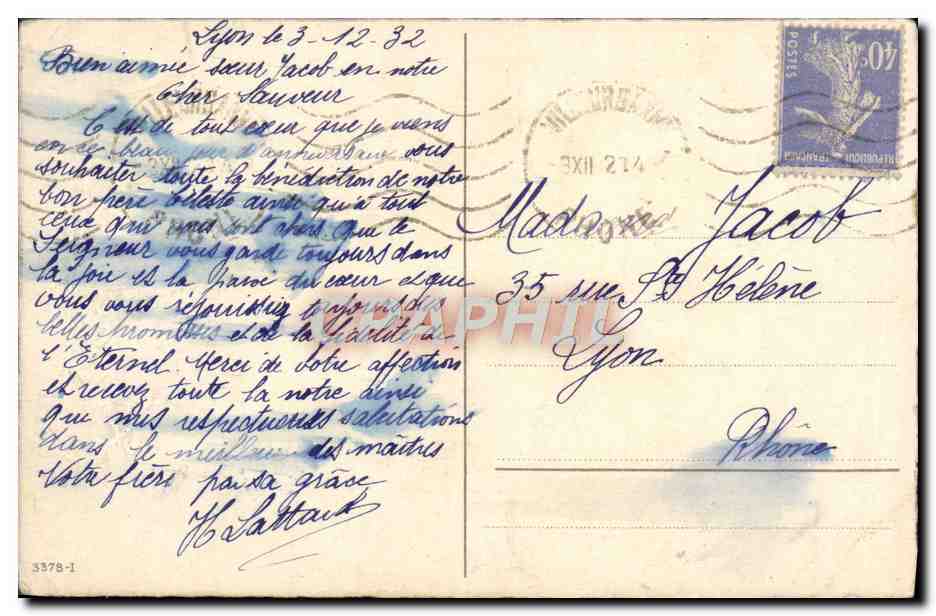 Lyon le 3-12-32
Bien aimée sœur Jacob en notre
Cher Sauveur
C'est de tout cœur que je viens
en ce beau jour d'anniversaire vous
souhaiter toute la bénédiction de notre
bon père céleste ainsi qu'à tout
ceux qui vous sont chers que le
Seigneur vous garde toujours dans
la joie et la paix du cœur et que
vous vous réjouissiez toujours des
belles promesses et de la fidélité de
l'Eternel. Merci de votre affection
et recevez toute la notre ainsi
que mes respectueuses salutations
dans le meilleur des maîtres
Votre frère par sa grâce
H Lattard
3378-I
VILLEURBANNE
3XII 21
RHONE
40c
POSTES
REPUBLIQUE FRANCAISE
Madame Jacob
35 rue Ste Hélène
Lyon
Rhône
CPAPHIL